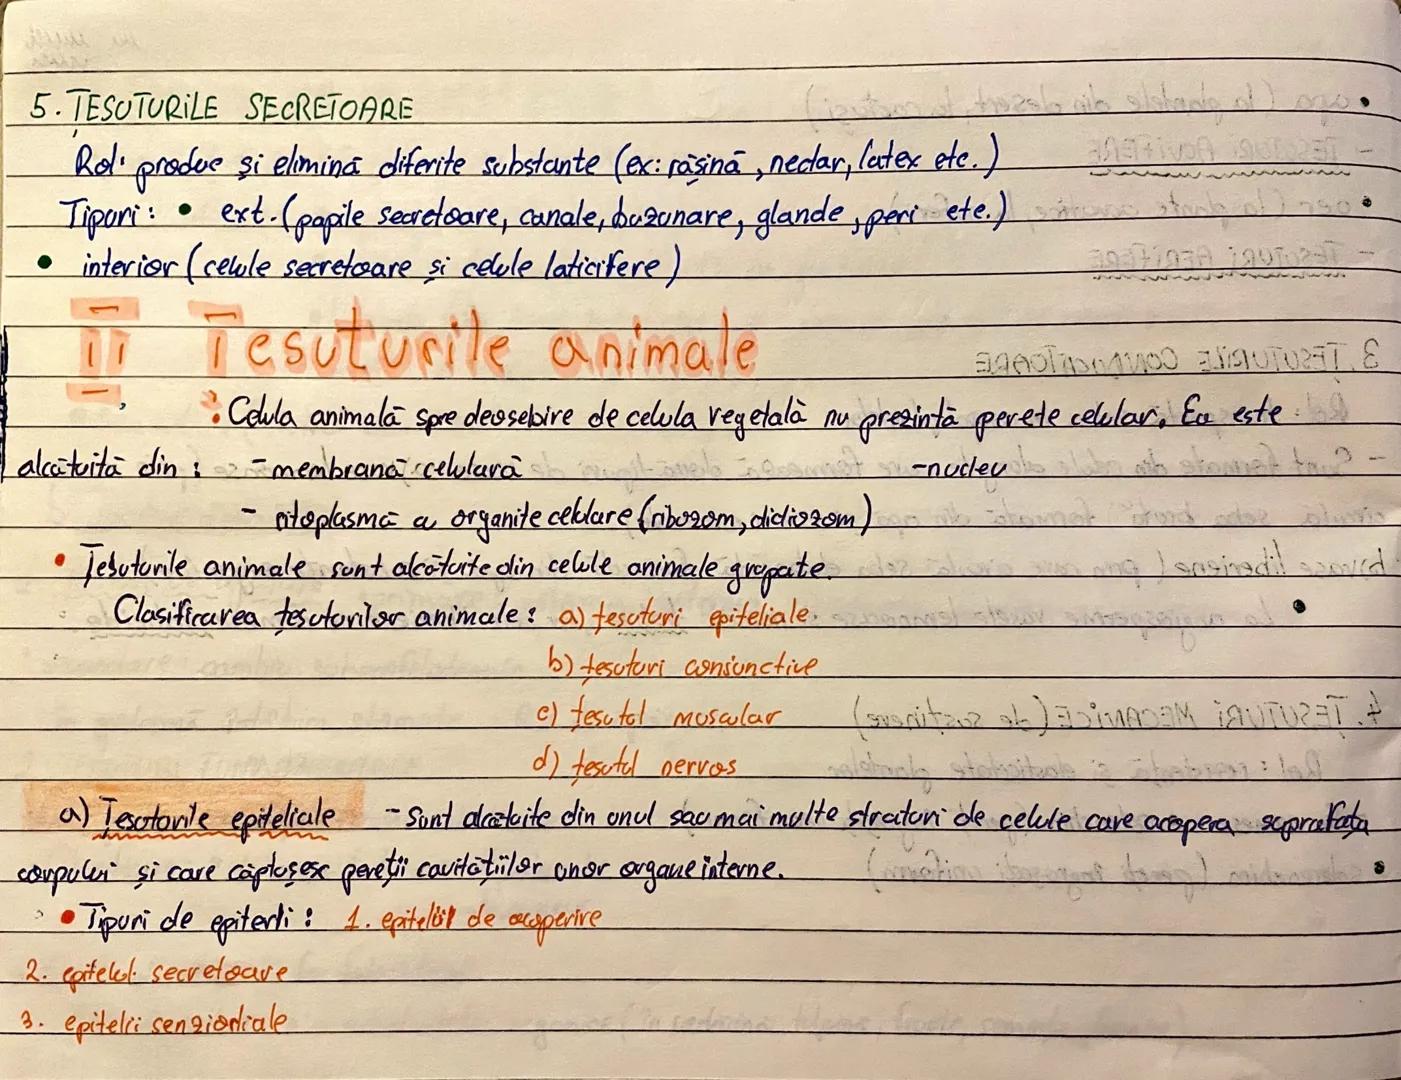 5. ȚESUTURILE SECRETOARE
Rol: produc și elimină diferite substanțe (ex: rășină, nectar, latex etc.)
Tipuri: • ext. (papile secretoare, canale, buzunare, glande, peri etc.)
• interior (celule secretoare și celule laticifere)
II Țesuturile animale
: Celula animală spre deosebire de celula vegetală nu prezintă perete celular. Ea este
alcătuită din: - membrană celulară - nucleu
- citoplasmă a organite celulare (ribozom, dictiozom)
• Țesuturile animale sunt alcătuite din celule animale grupate.
Clasificarea țesuturilor animale: a) țesuturi epiteliale
b) țesuturi conjunctive
c) țesutul muscular
d) țesutul nervos
a) Țesuturile epiteliale - Sunt alcătuite din unul sau mai multe straturi de celule care acoperă suprafața
corpului și care căptușesc pereții cavităților unor organe interne.
• Tipuri de epitelii: 1. epitelii de acoperire
2. epitelii secretoare
3. epitelii senzoriale